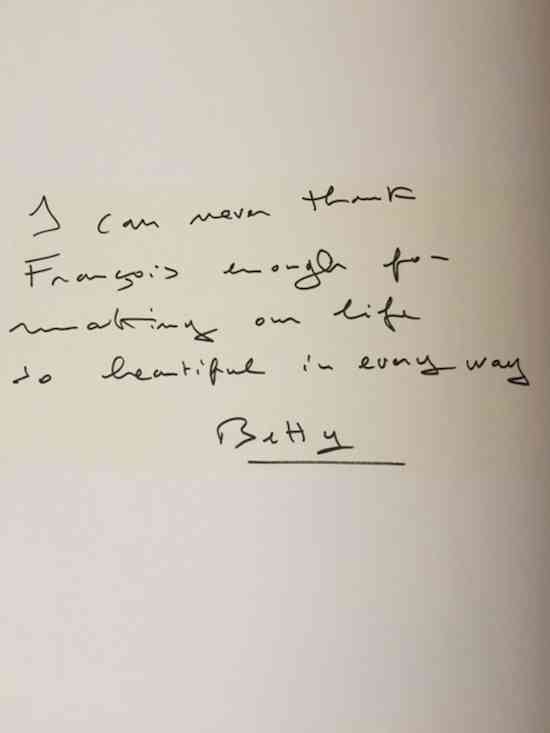 I can never thank
François enough for
making our life
so beautiful in every way
Betty